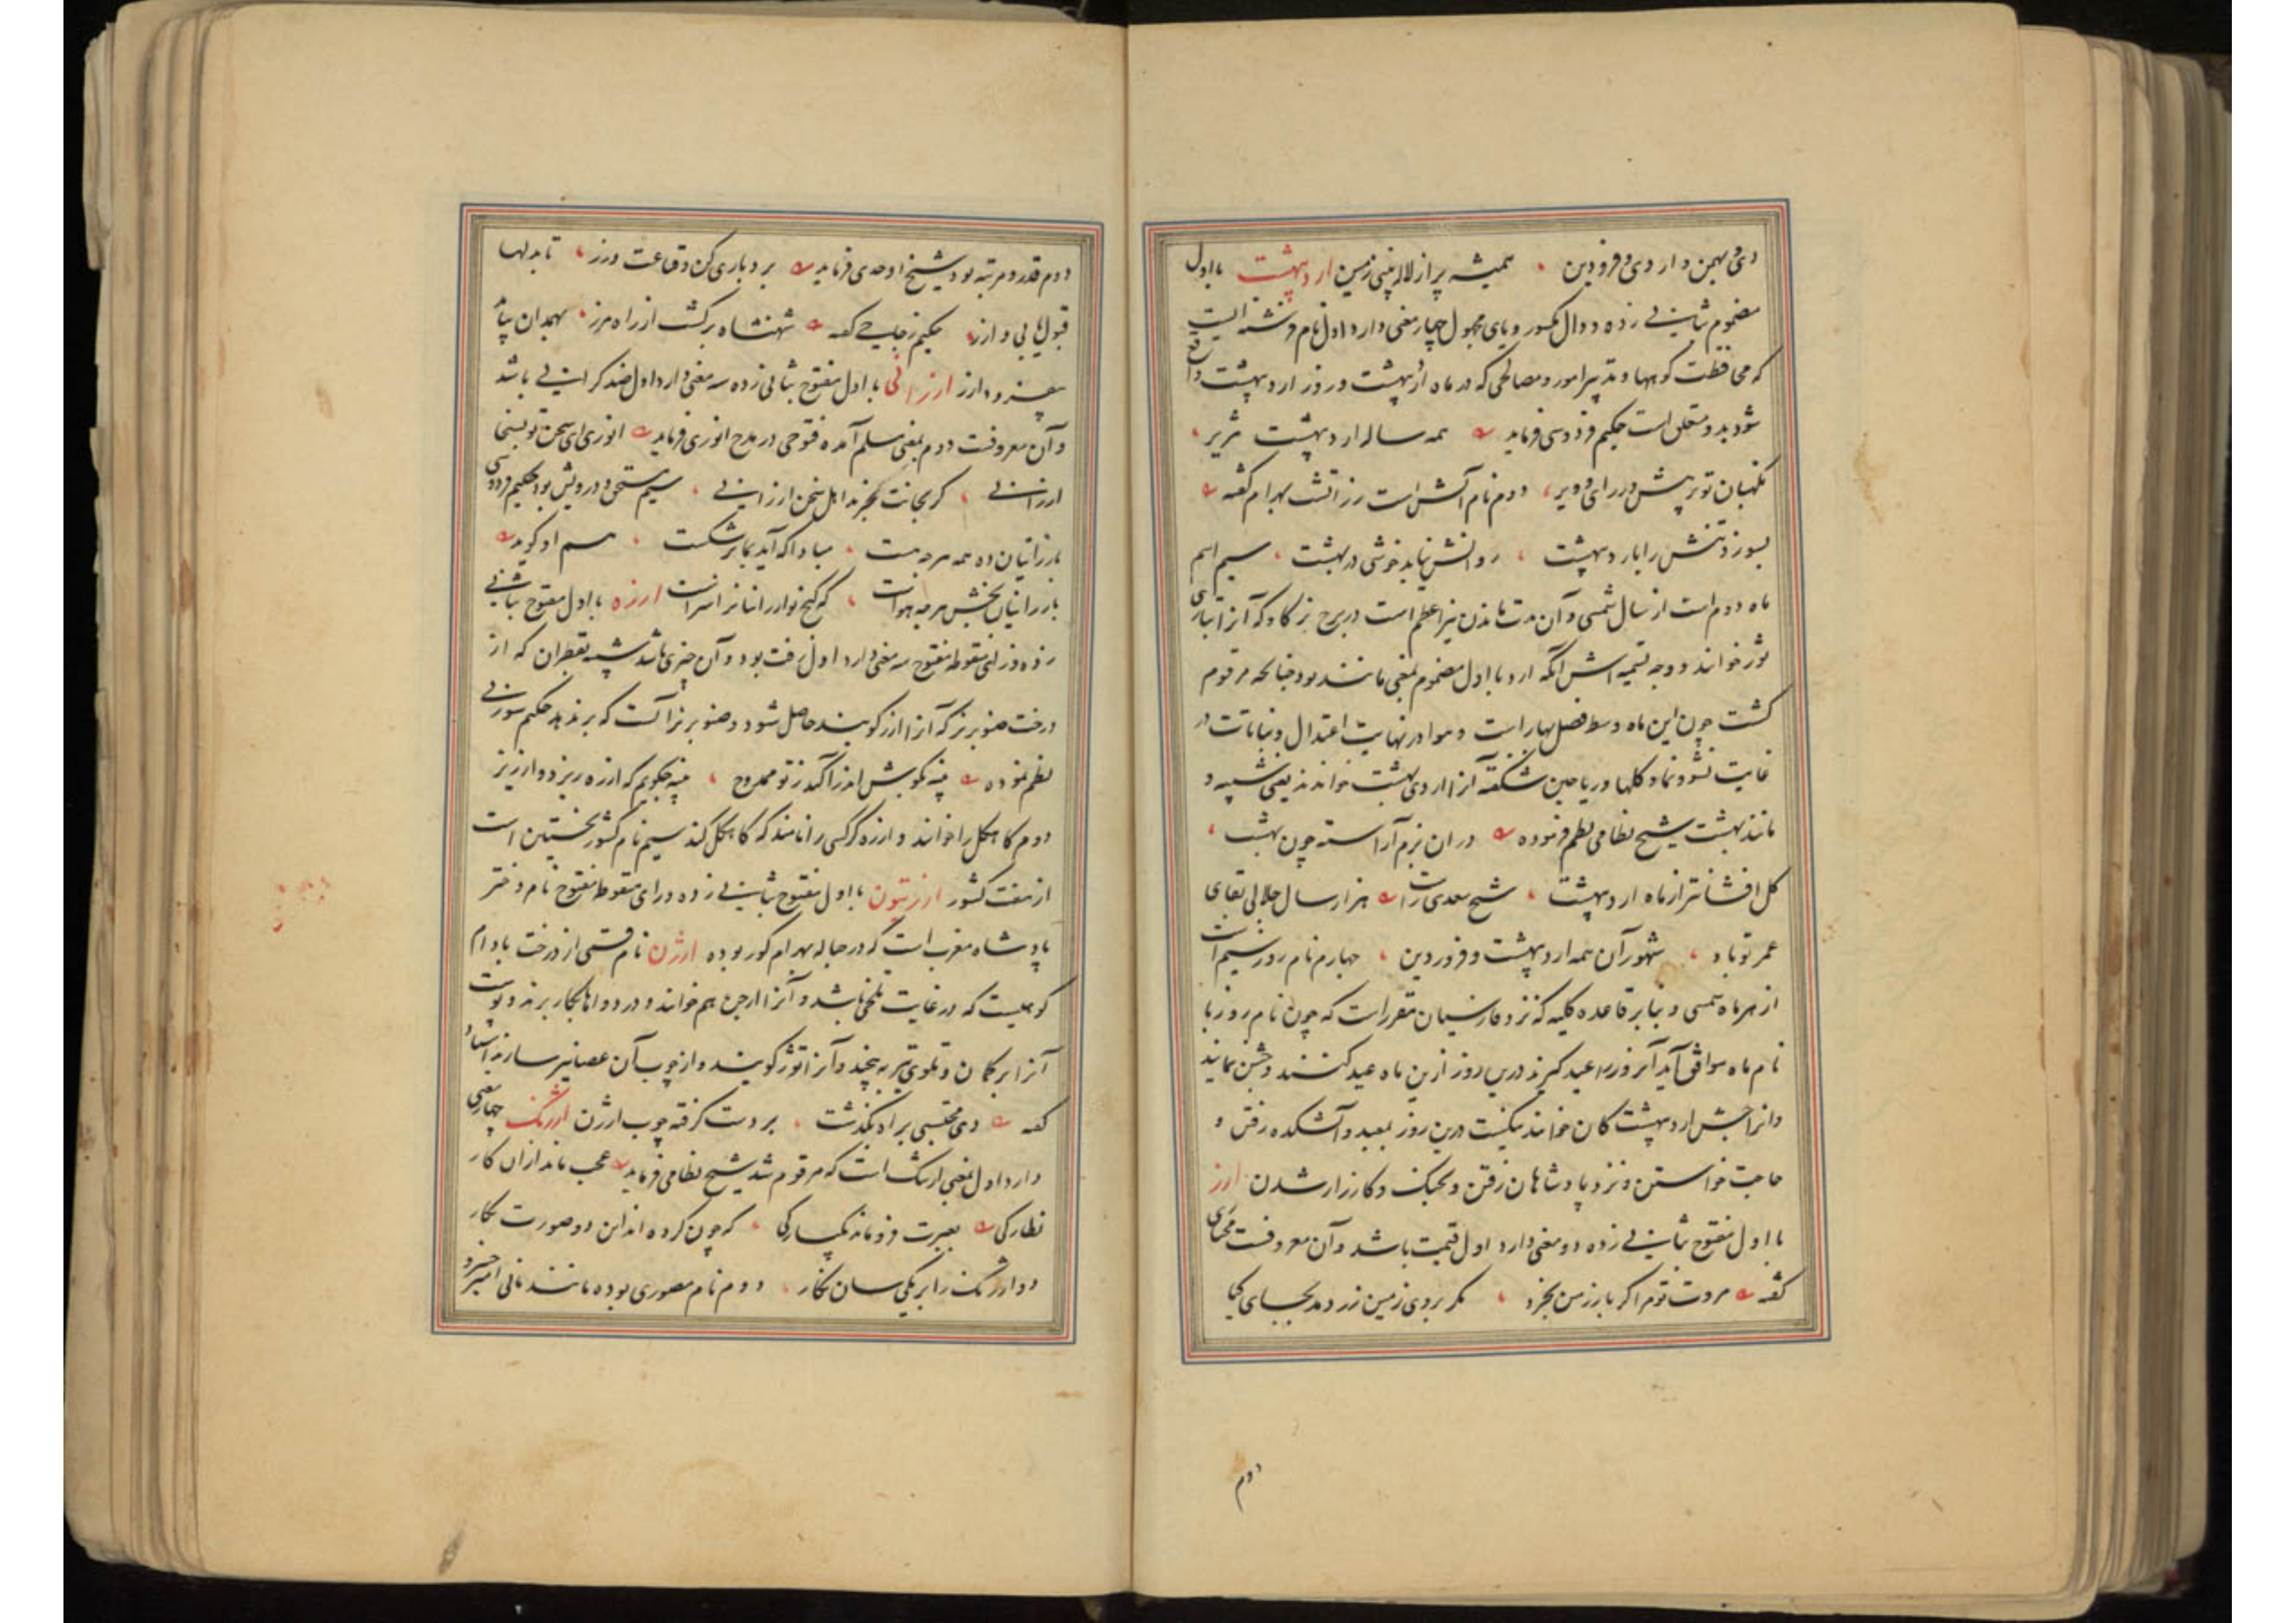 دی و بهمن و اردی و فرودین همیشه پر از لاله بینی زمین اردیبهشت با اول
مضموم بثانی زده و دال مکسور و یای مجهول چهار معنی دارد اول نام فرشته ایست
که محافظت کوهها و تدبیر امور و مصالحی که در ماه اردیبهشت و روز اردیبهشت واقع
شود بدو متعلق است حکیم فردوسی فرماید همه ساله اردیبهشت هژیر
نگهبان تو بر هش و رای و ویر دوم نام آتش است زراتشت بهرام گفته
بسوزد تنش را باردیبهشت روانش نیابد خوشی در بهشت سیم اسم
ماه دوم است از سال شمسی و آن مدت ماندن نیر اعظم است در برج گاو که آنرا بتازی
ثور خوانند و وجه تسمیه اش آنکه ارد با اول مضموم بمعنی مانند بود چنانچه مرقوم
گشت چون این ماه وسط فصل بهار است و هوا در نهایت اعتدال و نباتات در
غایت نشو و نما و گلها و ریاحین شگفته آنرا اردیبهشت خوانند یعنی شبیه و
مانند بهشت شیخ نظامی نظم فرموده در ان بزم آراسته چون بهشت
گل افشانتر از ماه اردیبهشت شیخ سعدی راست هزار سال جلالی بقای
عمر تو باد شهور آن همه اردیبهشت و فروردین چهارم نام روز سیم است
از هر ماه شمسی و بنا بر قاعده کلیه که نزد فارسیان مقرر است که چون نام روز با
نام ماه موافق آید آنروز را عید گیرند درین روز ازین ماه عید کنند و جشن نمایند
و انرا جشن اردیبهشتگان خوانند نیکست درین روز بمعبد و آتشکده رفتن و
حاجت خواستن و نزد پادشاهان رفتن و بجنگ و کارزار شدن ارز
با اول مفتوح بثانی زده دو معنی دارد اول قیمت باشد و آن معروفست مختاری
گفته مروت توم اگر بارز من بخرد مگر بروی زمین زر دمد بجای گیا
دوم
دوم قدر و مرتبه بود شیخ اوحدی فرماید بردباری کن و قناعت ورز تا بدلها
قبول یابی و ارز حکیم زجاجی گفته شهنشاه برگشت از راه مرز بهمدان بیامد
بفر و بارز ارزانی با اول مفتوح بثانی زده سه معنی دارد اول ضد گرانی باشد
و آن معروفست دوم بمعنی مسلم آمده فتوحی در مدح انوری فرماید انوری ای سخن تو بسخا
ارزانی گر بجانت بخرند اهل سخن ارزانی سیم مستحق و درویش بود حکیم فردوسی
بارزانیان ده همه هرچه هست مبادا که آید بما بر شکست هم او گوید
بارزانیان بخش هرچه هواست که گنج تو ارزانیانرا سزاست ارزه با اول مفتوح بثانی
زده و زای منقوطه مفتوح سه معنی دارد اول زفت بود و آن چیزی باشد شبیه بقطران که از
درخت صنوبر نر که آنرا ارز گویند حاصل شود و صنوبر نر آنست که بر ندهد حکیم سوزنی
نظم نموده
دوم کاهگل را خوانند و ارزه گر کسی را نامند که کاهگل کند سیم نام کشور نخستین است
از هفت کشور ارزیتون با اول مفتوح بثانی زده و زای منقوطه مفتوح نام دختر
پادشاه مغرب است که در حباله بهرام گور بوده ارژن نام قسمی از درخت بادام
کوهیست که در غایت تلخی باشد و آنرا ارجن هم خوانند و در دواها بکار برند و پوست
آنرا بر کمان و تیر به پیچند و آنرا توز گویند و از چوب آن عصا نیز سازند استاد
گفته دی محتسبی براه بگذشت بر دست گرفته چوب ارژن ارژنگ چهار معنی
دارد اول بمعنی ارتنگ است که مرقوم شد شیخ نظامی فرماید عجب ماند ازان کار
نظارگی بعبرت فرو ماند یکبارگی که چون کرده اند این دو صورت نگار
دو ارژنگ را بر یکی سان نگار دوم نام مصوری بوده مانند مانی امیر خسرو